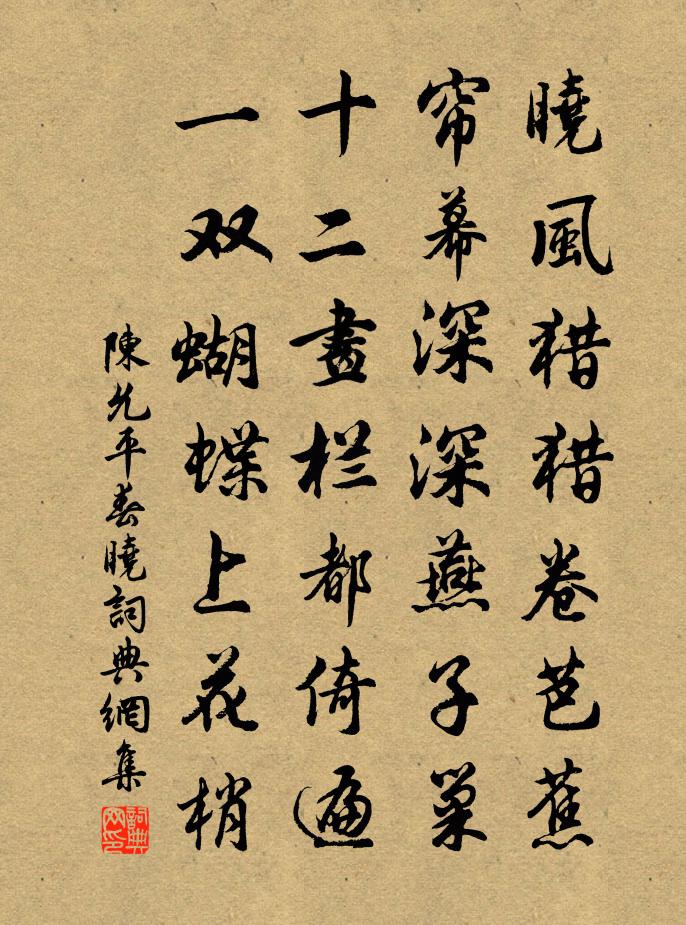 曉風猎猎卷芭蕉
帘幕深深燕子巢
十二畫栏都倚遍
一双蝴蝶上花梢
陳允平春曉詞典網集
詞典網印